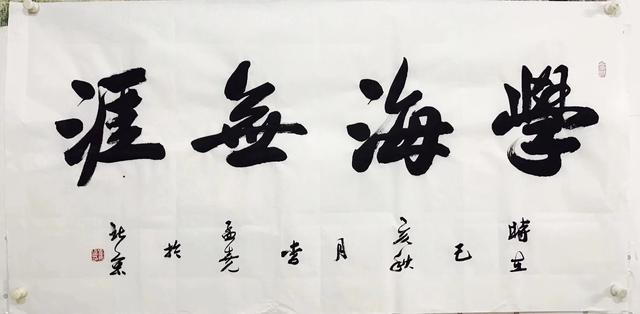 學海無涯
時在己亥秋月李孟尧於北京